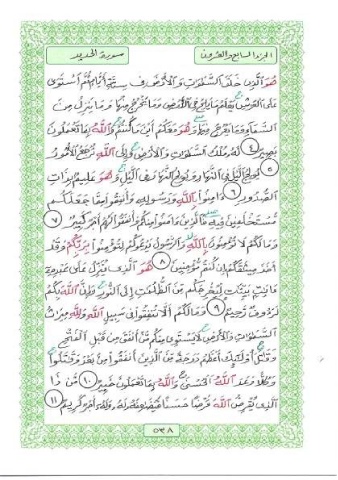 الجزء السابع والعشرون
سورة الحديد
هُوَ الَّذِي خَلَقَ السَّمٰوٰتِ وَالْأَرْضَ فِي سِتَّةِ أَيَّامٍ ثُمَّ اسْتَوَىٰ
عَلَى الْعَرْشِ يَعْلَمُ مَا يَلِجُ فِي الْأَرْضِ وَمَا يَخْرُجُ مِنْهَا وَمَا يَنْزِلُ مِنَ
السَّمَاءِ وَمَا يَعْرُجُ فِيهَا وَهُوَ مَعَكُمْ أَيْنَ مَا كُنْتُمْ وَاللَّهُ بِمَا تَعْمَلُونَ
بَصِيرٌ ٤ لَهُ مُلْكُ السَّمٰوٰتِ وَالْأَرْضِ وَإِلَى اللَّهِ تُرْجَعُ الْأُمُورُ
٥ يُولِجُ الَّيْلَ فِي النَّهَارِ وَيُولِجُ النَّهَارَ فِي الَّيْلِ وَهُوَ عَلِيمٌ بِذَاتِ
الصُّدُورِ ٦ ءَامِنُوا بِاللَّهِ وَرَسُولِهِ وَأَنْفِقُوا مِمَّا جَعَلَكُمْ
مُسْتَخْلَفِينَ فِيهِ فَالَّذِينَ ءَامَنُوا مِنْكُمْ وَأَنْفَقُوا لَهُمْ أَجْرٌ كَبِيرٌ ٧
وَمَا لَكُمْ لَا تُؤْمِنُونَ بِاللَّهِ وَالرَّسُولُ يَدْعُوكُمْ لِتُؤْمِنُوا بِرَبِّكُمْ وَقَدْ
أَخَذَ مِيثٰقَكُمْ إِنْ كُنْتُمْ مُؤْمِنِينَ ٨ هُوَ الَّذِي يُنَزِّلُ عَلَىٰ عَبْدِهِ
ءَايٰتٍ بَيِّنٰتٍ لِيُخْرِجَكُمْ مِنَ الظُّلُمٰتِ إِلَى النُّورِ وَإِنَّ اللَّهَ بِكُمْ
لَرَءُوفٌ رَحِيمٌ ٩ وَمَا لَكُمْ أَلَّا تُنْفِقُوا فِي سَبِيلِ اللَّهِ وَلِلَّهِ مِيرٰثُ
السَّمٰوٰتِ وَالْأَرْضِ لَا يَسْتَوِي مِنْكُمْ مَنْ أَنْفَقَ مِنْ قَبْلِ الْفَتْحِ
وَقٰتَلَ أُولٰئِكَ أَعْظَمُ دَرَجَةً مِنَ الَّذِينَ أَنْفَقُوا مِنْ بَعْدُ وَقٰتَلُوا
وَكُلًّا وَعَدَ اللَّهُ الْحُسْنَىٰ وَاللَّهُ بِمَا تَعْمَلُونَ خَبِيرٌ ١٠ مَنْ ذَا
الَّذِي يُقْرِضُ اللَّهَ قَرْضًا حَسَنًا فَيُضٰعِفَهُ لَهُ وَلَهُ أَجْرٌ كَرِيمٌ ١١
٥٣٨